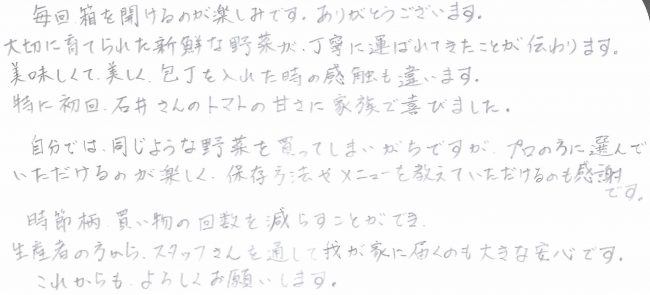 毎回箱を開けるのが楽しみです。ありがとうございます。
大切に育てられた新鮮な野菜が、丁寧に運ばれてきたことが伝わります。
美味しくて、美しく、包丁を入れた時の感触も違います。
特に初回、石井さんのトマトの甘さに家族で喜びました。
自分では、同じような野菜を買ってしまいがちですが、プロの方に選んで
いただけるのが楽しく、保存方法やメニューを教えていただけるのも感謝
です。
時節柄、買い物の回数を減らすことができ、
生産者の方から、スタッフさんを通して我が家に届くのも大きな安心です。
これからも、よろしくお願いします。